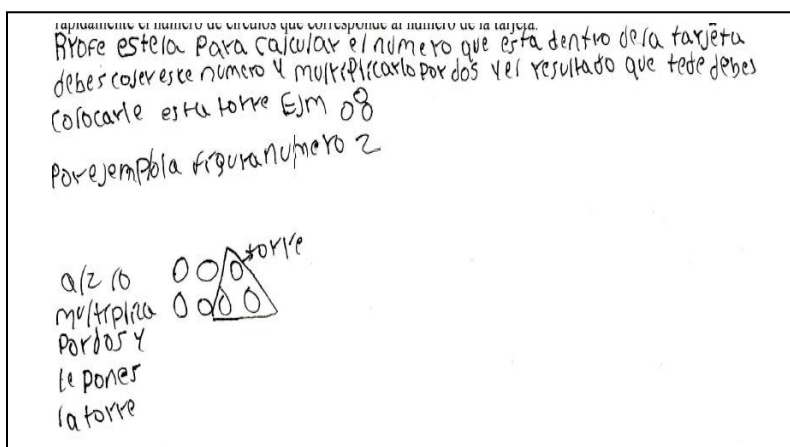 rápidamente el número de círculos que corresponde al número de la tarjeta.
Profe estela Para calcular el numero que esta dentro de la tarjeta
debes coser este numero y multiplicarlo por dos y el resultado que te de debes
colocarle esta torre EJm
Por ejemplo la figura numero 2
torre
al 2 lo
multiplica
Por dos y
le pones
la torre